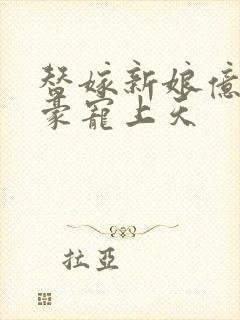 替嫁新娘億
豪寵上天
拉亞